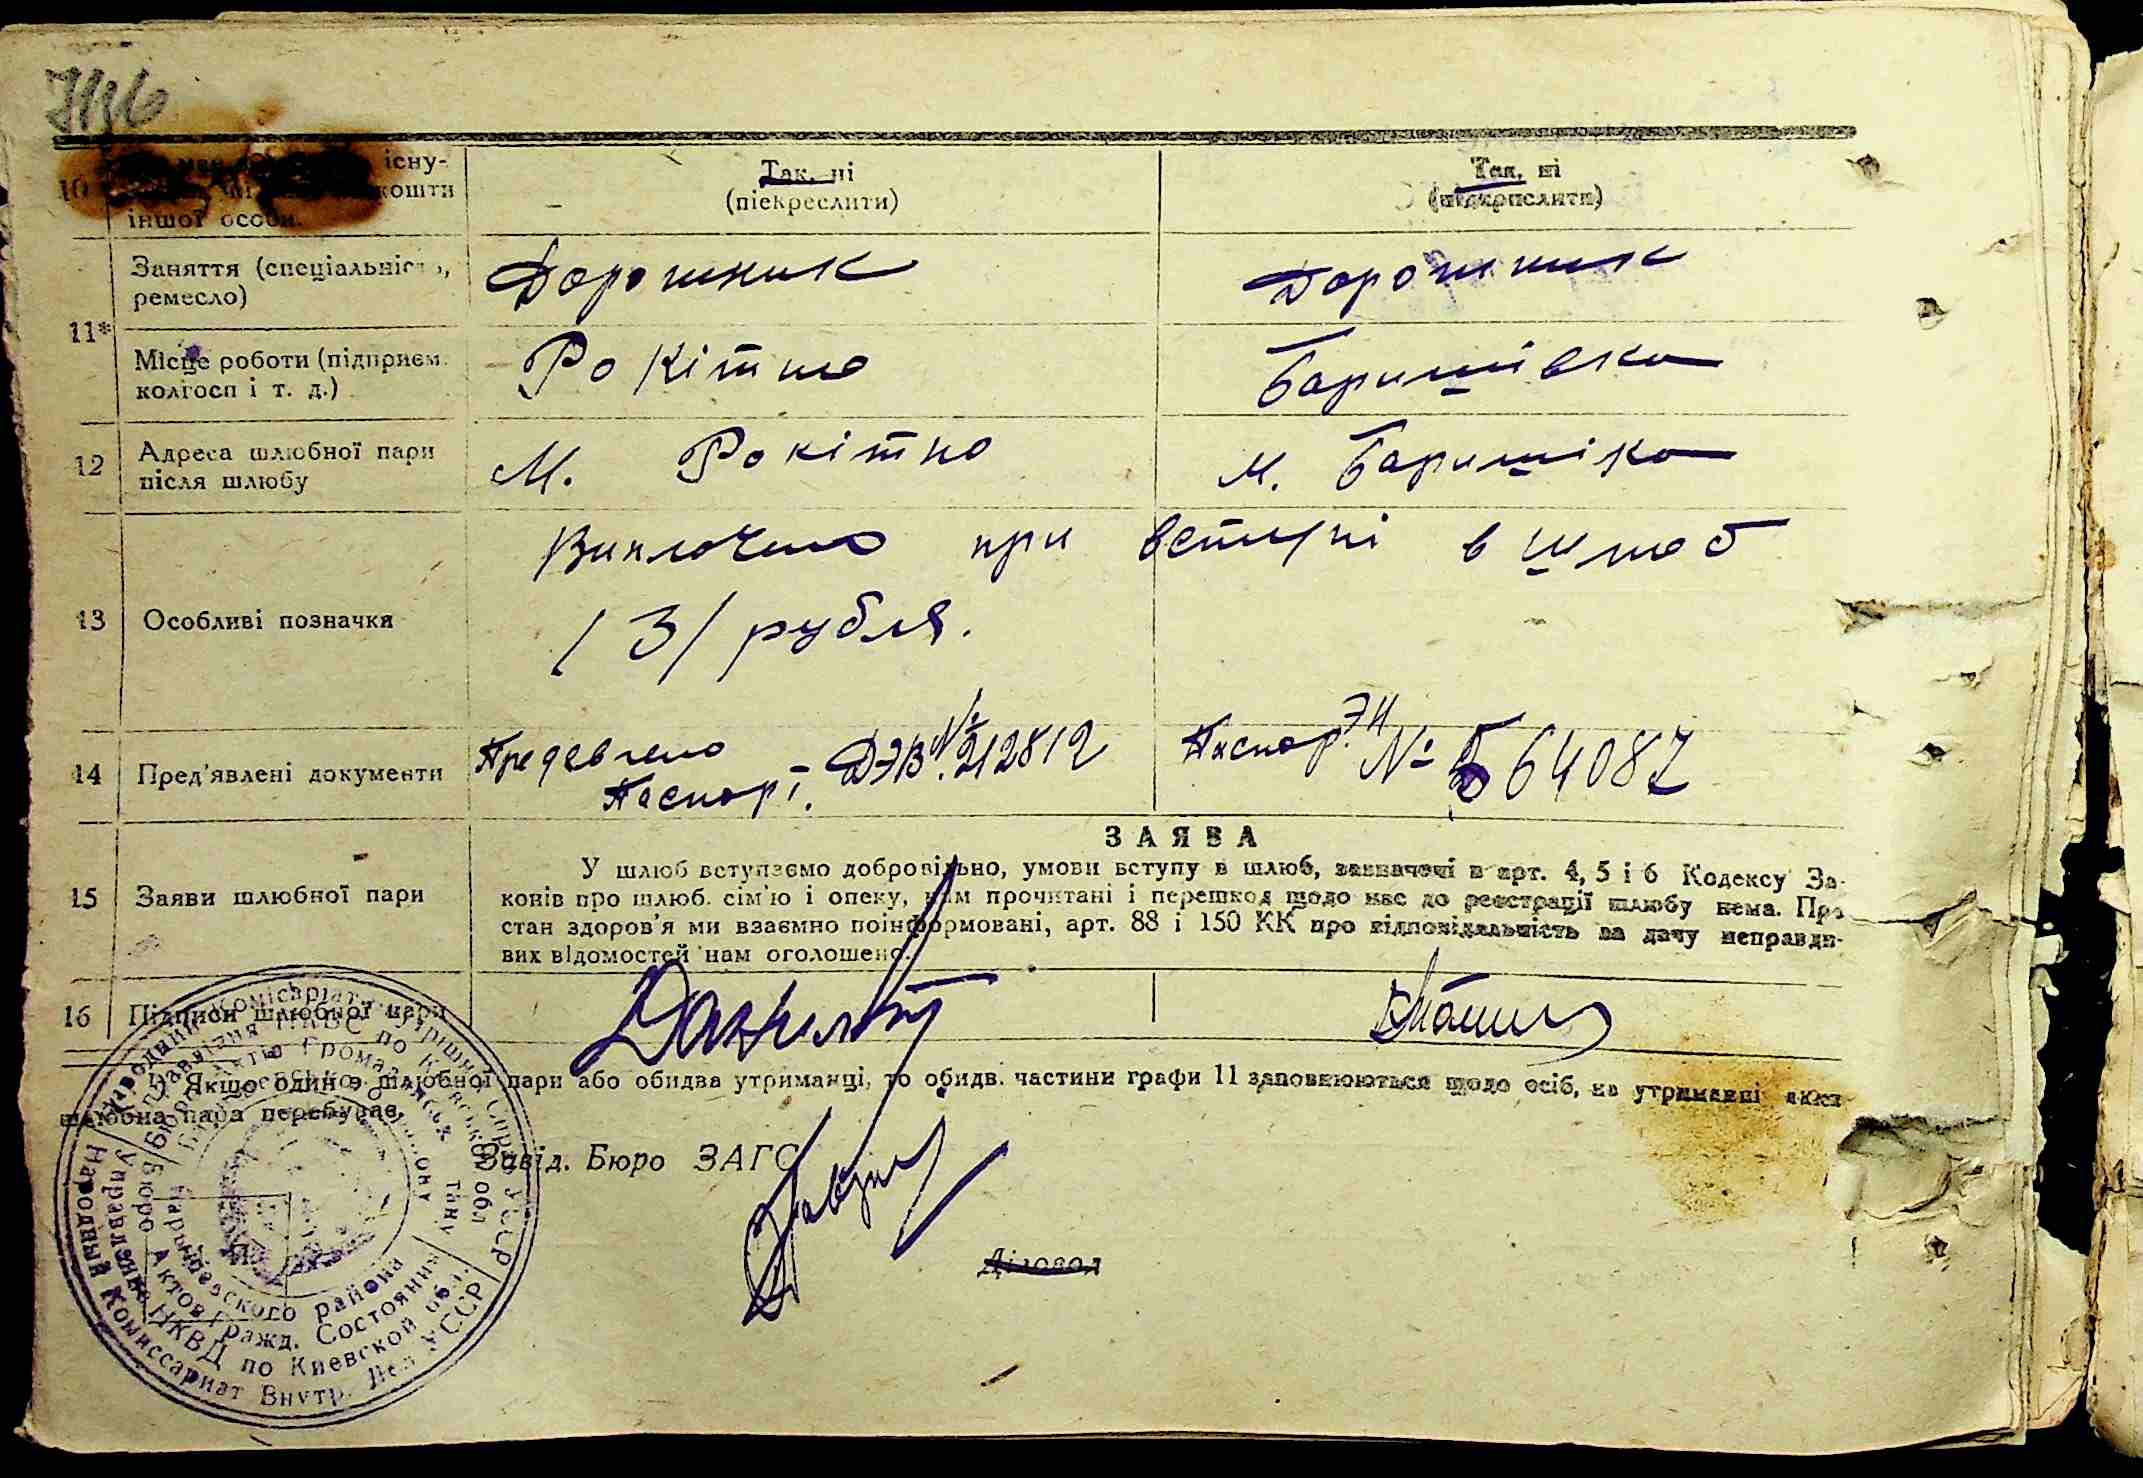 існу-
10 кошти
іншої особи.
Так, ні
(піекреслити)
Так, ні
(підкреслити)
11*
Заняття (спеціальність,
ремесло)
Дорошник
Дорошник
Місце роботи (підприєм.
колгосп і т. д.)
Рокітно
Баришівка
12
Адреса шлюбної пари
після шлюбу
м. Рокітно
м. Баришіка
13 Особливі позначки
Виплочено при вступі в шлюб
/3/ рубля.
14 Пред'явлені документи
Предевлено
Паспорт. ДЭВ № 212812
Паспор. ЭИ № 564087
15 Заяви шлюбної пари
ЗАЯВА
У шлюб вступаємо добровільно, умови вступу в шлюб, зазначені в арт. 4, 5 і 6 Кодексу За-
конів про шлюб. сім'ю і опеку, нам прочитані і перешкод щодо нас до реєстрації шлюбу нема. Про
стан здоров'я ми взаємно поінформовані, арт. 88 і 150 КК про відповідальність за дачу неправди-
вих відомостей нам оголошено.
16 Підписи шлюбної пари
*) Якщо один з шлюбної пари або обидва утриманці, то обидв. частини графи 11 заповнюються щодо осіб, на утриманні яких
шлюбна пара перебуває.
Завід. Бюро ЗАГС
Діловод
Народный Комиссариат Внутр. Дел УССР
Управление НКВД по Киевской обл.
Бюро Актов Гражд. Состояния
Барышевского района